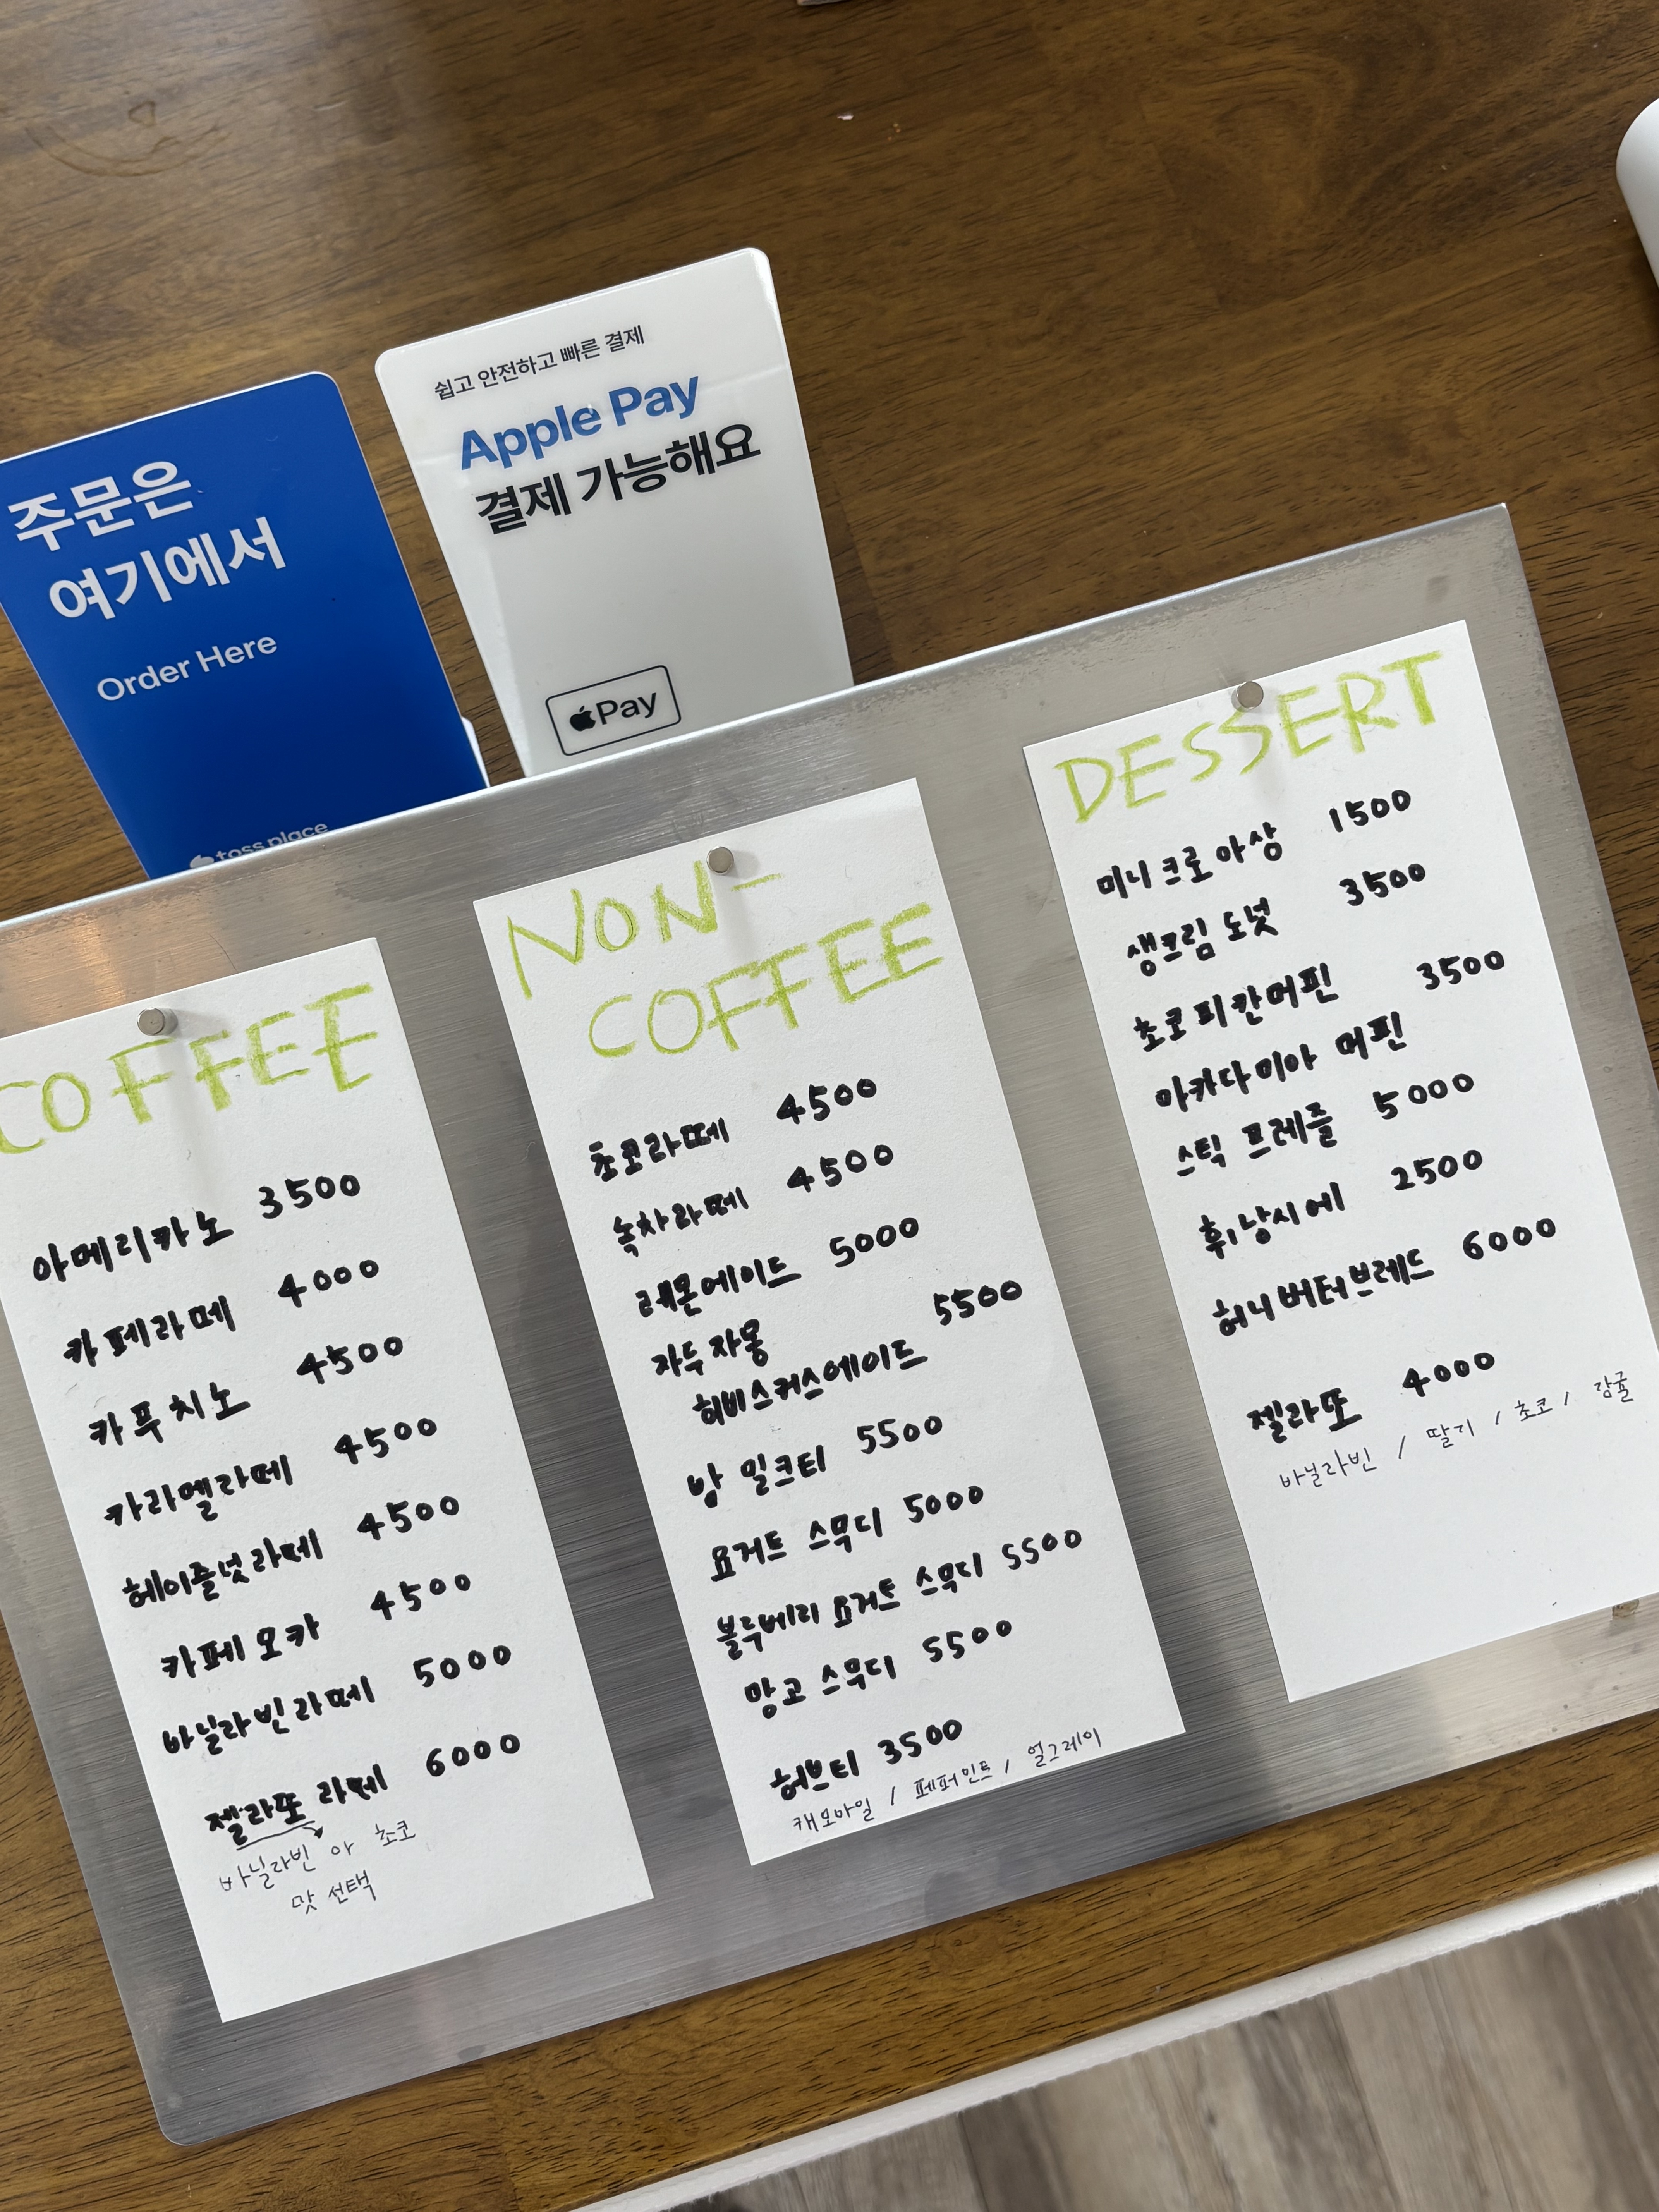 주문은
여기에서
Order Here
toss place
쉽고 안전하고 빠른 결제
Apple Pay
결제 가능해요
Pay
COFFEE
아메리카노 3500
카페라떼 4000
카푸치노 4500
카라멜라떼 4500
헤이즐넛라떼 4500
카페모카 4500
바닐라빈라떼 5000
젤라또 라떼 6000
바닐라빈 아 초코
맛 선택
NON-
COFFEE
초코라떼 4500
녹차라떼 4500
레몬에이드 5000
자두자몽 5500
히비스커스에이드
밤 밀크티 5500
요거트 스무디 5000
블루베리 요거트 스무디 5500
망고 스무디 5500
허브티 3500
캐모마일 / 페퍼민트 / 얼그레이
DESSERT
미니크로아상 1500
생크림 도넛 3500
초코피칸머핀 3500
마카다미아 머핀
스틱 프레즐 5000
휘낭시에 2500
허니버터브레드 6000
젤라또 4000
바닐라빈 / 딸기 / 초코 / 감귤